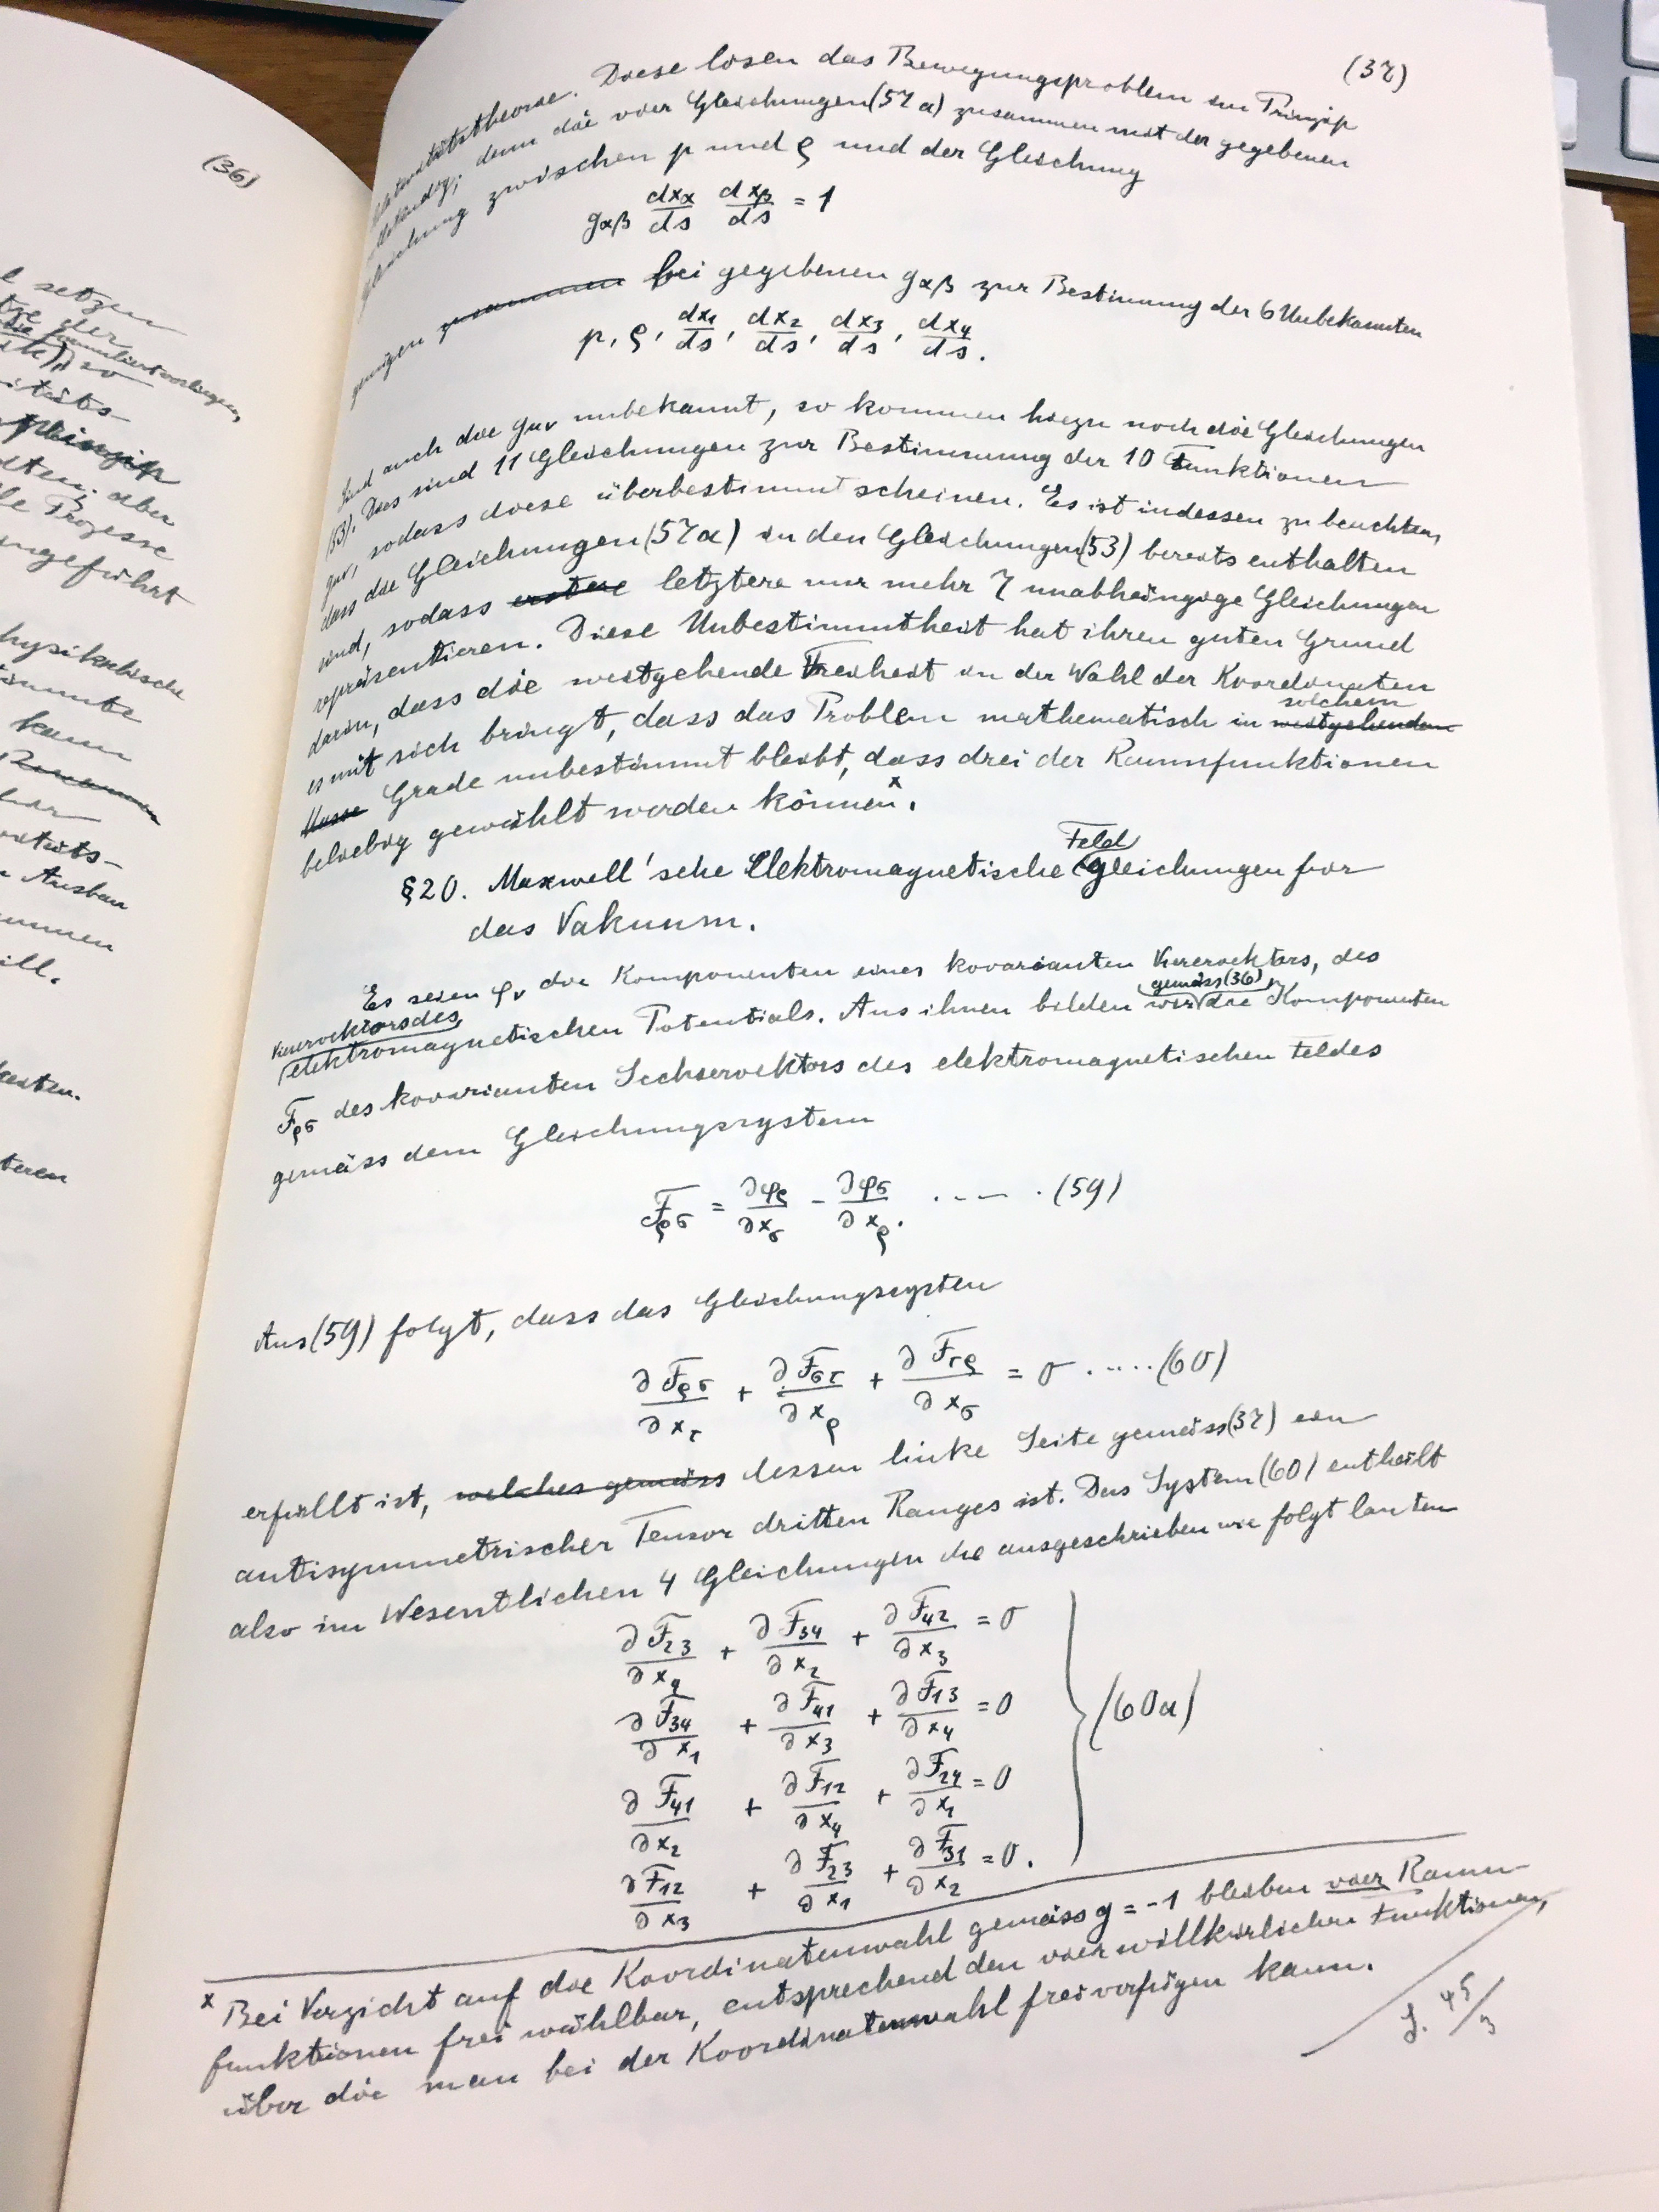 (36)
l setzen
tze der
itäts-
Prinzip
lten; aber
le Prozesse
ngeführt
hysikalische
timmte
kann
Ausbau
ummen
ill.
teren
(37)
lativitätstheorie. Diese lösen das Bewegungsproblem im Prinzip
llständig; denn die vier Gleichungen (57a) zusammen mit der gegebenen
Gleichung zwischen p und ρ und der Gleichung
g_αβ dx_α/ds dx_β/ds = 1
genügen zusammen bei gegebenen g_αβ zur Bestimmung der 6 Unbekannten
p, ρ, dx₁/ds, dx₂/ds, dx₃/ds, dx₄/ds.
Sind auch die g_μν unbekannt, so kommen hiezu noch die Gleichungen
(53). Dies sind 11 Gleichungen zur Bestimmung der 10 Funktionen
g_μν, sodass diese überbestimmt scheinen. Es ist indessen zu beachten,
dass die Gleichungen (57a) in den Gleichungen (53) bereits enthalten
sind, sodass erstere letztere nur mehr 7 unabhängige Gleichungen
repräsentieren. Diese Unbestimmtheit hat ihren guten Grund
darin, dass die weitgehende Freiheit in der Wahl der Koordinaten
es mit sich bringt, dass das Problem mathematisch in weitgehendem solchem
Grade unbestimmt bleibt, dass drei der Raumfunktionen
beliebig gewählt werden können ˣ.
§20. Maxwell'sche Elektromagnetische Feldgleichungen für
das Vakuum.
Es seien φ_ν die Komponenten eines kovarianten Vierervektors, des
Vierervektors des
elektromagnetischen Potentials. Aus ihnen bilden wir gemäss (36) die Komponenten
F_ρσ des kovarianten Sechservektors des elektromagnetischen Feldes
gemäss dem Gleichungssystem
F_ρσ = ∂φ_ρ/∂x_σ − ∂φ_σ/∂x_ρ. . . . . (59)
Aus (59) folgt, dass das Gleichungssystem
∂F_ρσ/∂x_τ + ∂F_στ/∂x_ρ + ∂F_τρ/∂x_σ = 0 . . . . . (60)
erfüllt ist, welches gemäss dessen linke Seite gemäss (37) ein
antisymmetrischer Tensor dritten Ranges ist. Das System (60) enthält
also im Wesentlichen 4 Gleichungen die ausgeschrieben wie folgt lauten
∂F₂₃/∂x₄ + ∂F₃₄/∂x₂ + ∂F₄₂/∂x₃ = 0
∂F₃₄/∂x₁ + ∂F₄₁/∂x₃ + ∂F₁₃/∂x₄ = 0
(60a)
∂F₄₁/∂x₂ + ∂F₁₂/∂x₄ + ∂F₂₄/∂x₁ = 0
∂F₁₂/∂x₃ + ∂F₂₃/∂x₁ + ∂F₃₁/∂x₂ = 0.
ˣ Bei Verzicht auf die Koordinatenwahl gemäss g = -1 bleiben vier Raum-
funktionen frei wählbar, entsprechend den vier willkürlichen Funktionen,
über die man bei der Koordinatenwahl frei verfügen kann.
S. 45/3